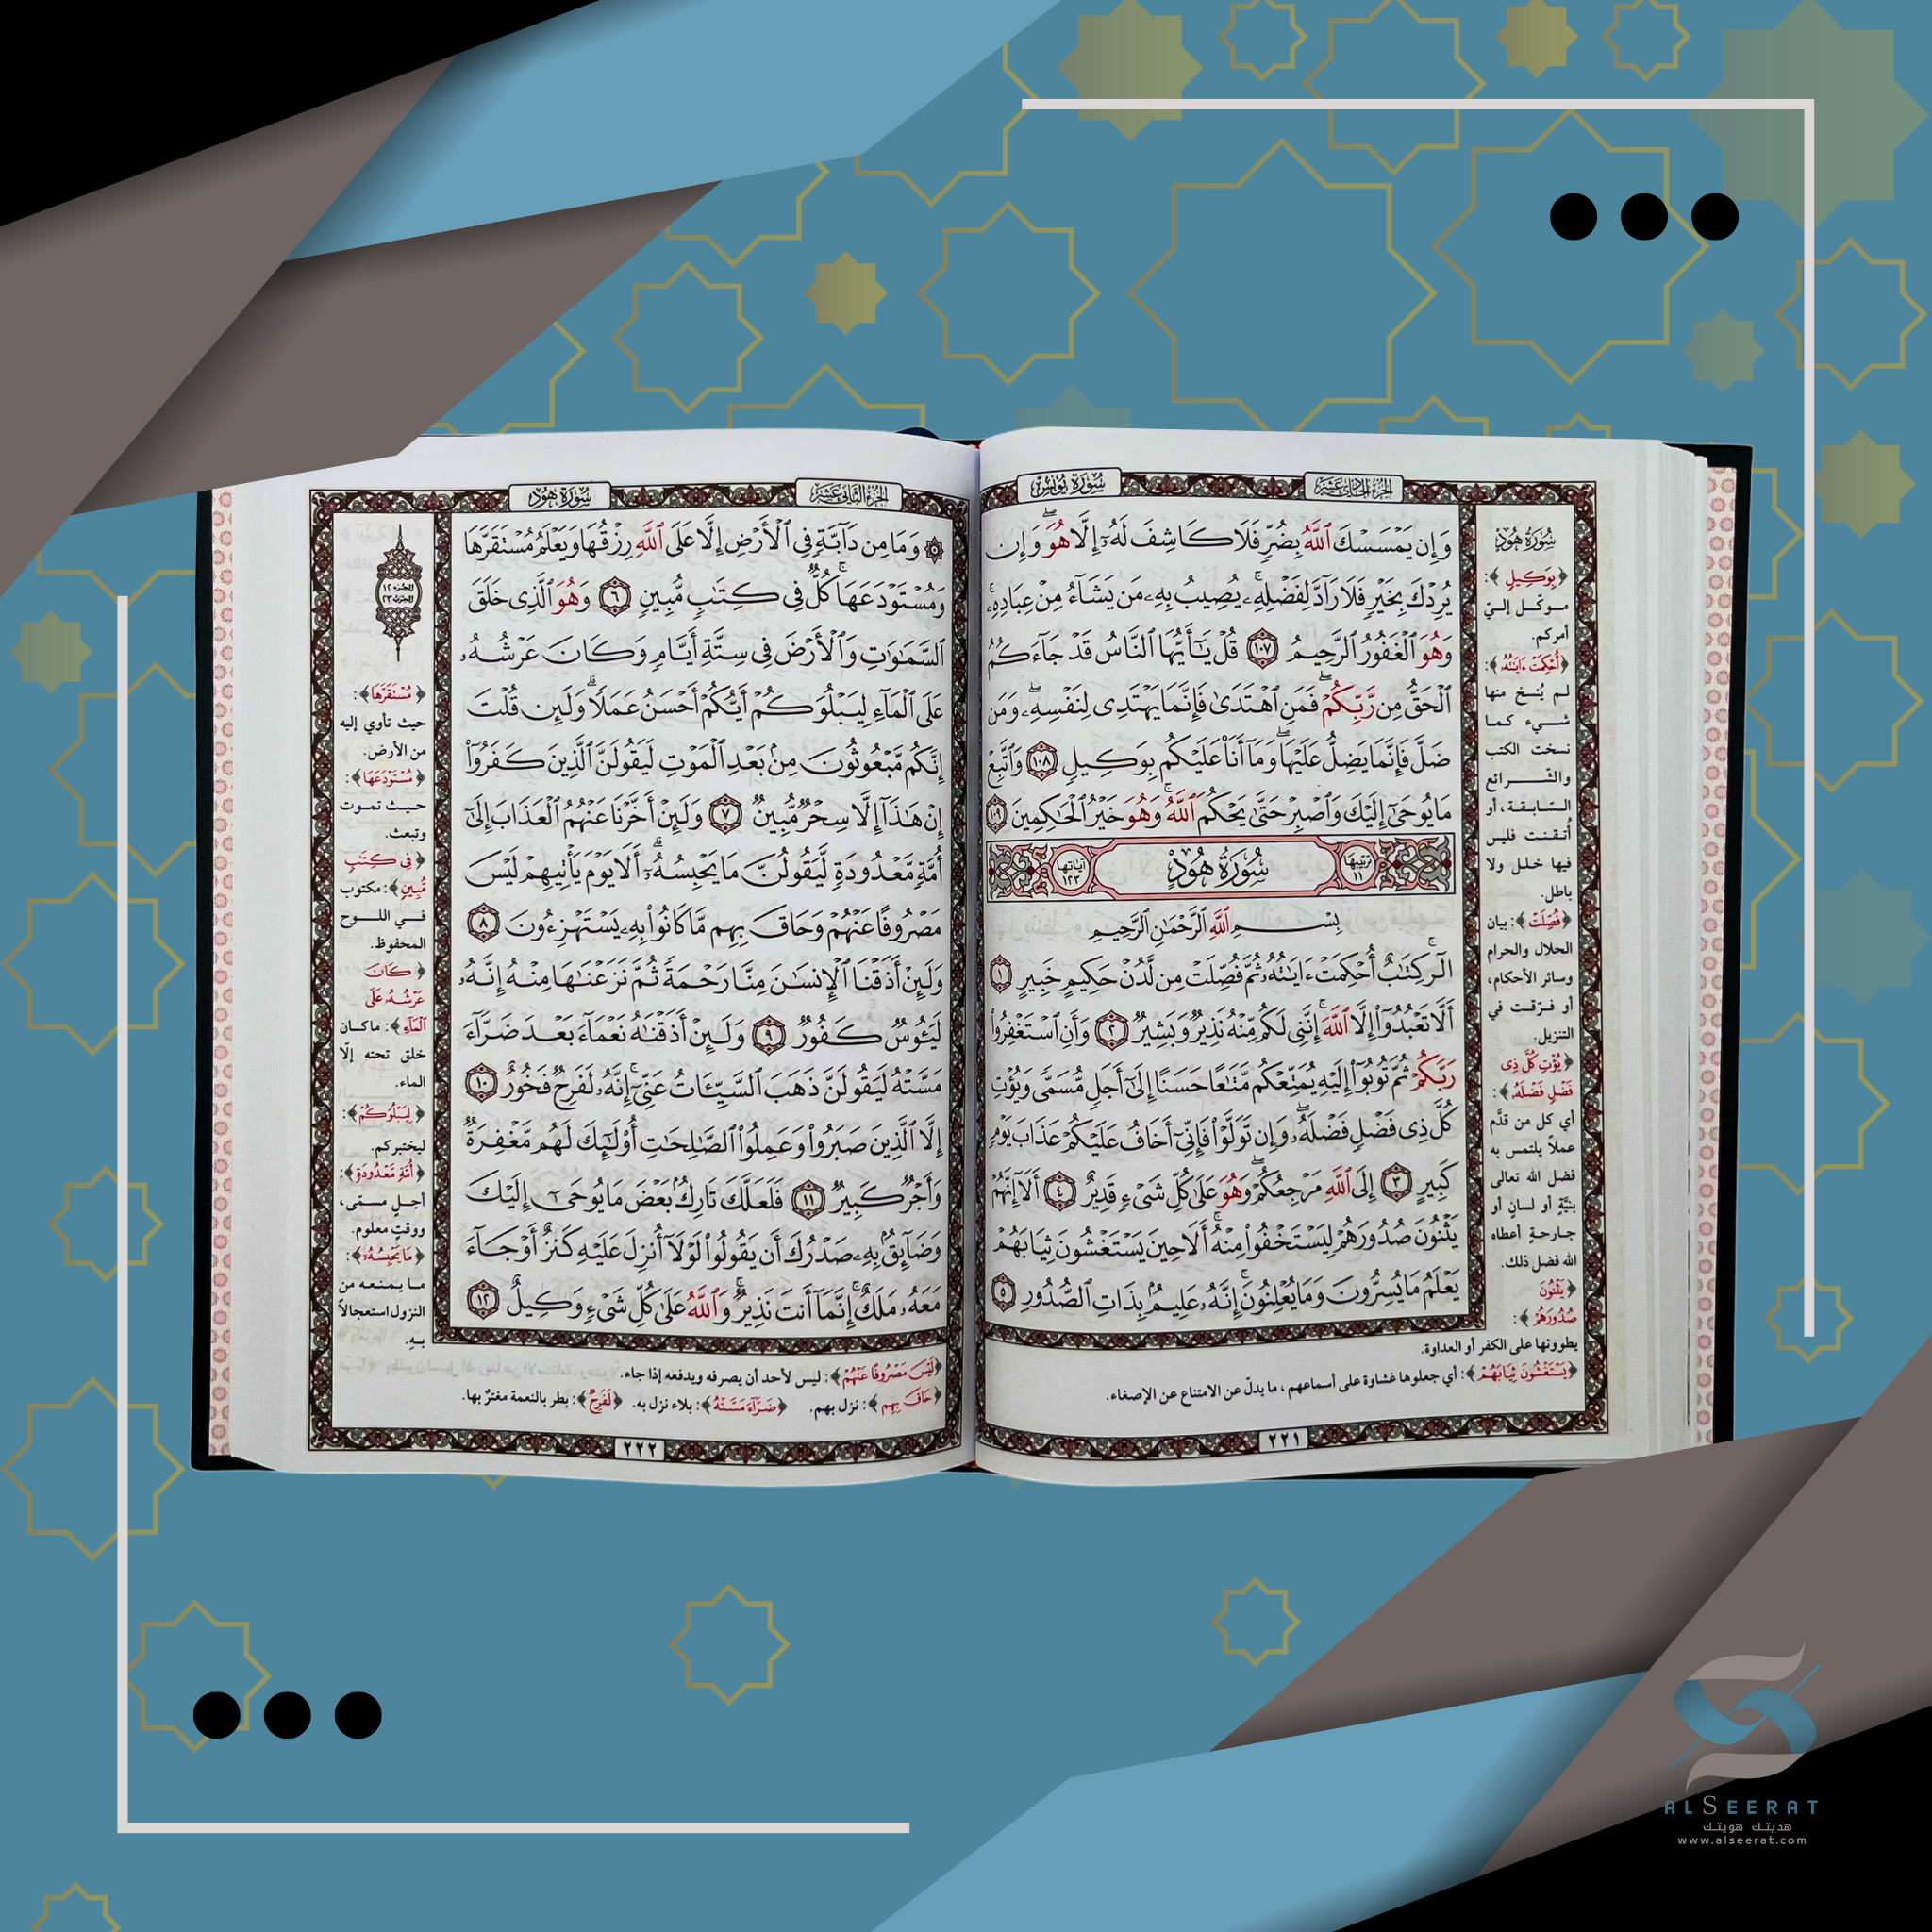 سُورَةُ يُونُسَ
الجزء الحادي عشر
وَإِن يَمْسَسْكَ ٱللَّهُ بِضُرٍّ فَلَا كَاشِفَ لَهُۥٓ إِلَّا هُوَ ۖ وَإِن
يُرِدْكَ بِخَيْرٍ فَلَا رَآدَّ لِفَضْلِهِۦ ۚ يُصِيبُ بِهِۦ مَن يَشَآءُ مِنْ عِبَادِهِۦ ۚ
وَهُوَ ٱلْغَفُورُ ٱلرَّحِيمُ ١٠٧ قُلْ يَـٰٓأَيُّهَا ٱلنَّاسُ قَدْ جَآءَكُمُ
ٱلْحَقُّ مِن رَّبِّكُمْ ۖ فَمَنِ ٱهْتَدَىٰ فَإِنَّمَا يَهْتَدِى لِنَفْسِهِۦ ۖ وَمَن
ضَلَّ فَإِنَّمَا يَضِلُّ عَلَيْهَا ۖ وَمَآ أَنَا۠ عَلَيْكُم بِوَكِيلٍ ١٠٨ وَٱتَّبِعْ
مَا يُوحَىٰٓ إِلَيْكَ وَٱصْبِرْ حَتَّىٰ يَحْكُمَ ٱللَّهُ ۚ وَهُوَ خَيْرُ ٱلْحَـٰكِمِينَ ١٠٩
ترتيبها ١١ سُورَةُ هُودٍ آياتها ١٢٣
بِسْمِ ٱللَّهِ ٱلرَّحْمَـٰنِ ٱلرَّحِيمِ
الٓر ۚ كِتَـٰبٌ أُحْكِمَتْ ءَايَـٰتُهُۥ ثُمَّ فُصِّلَتْ مِن لَّدُنْ حَكِيمٍ خَبِيرٍ ١
أَلَّا تَعْبُدُوٓا۟ إِلَّا ٱللَّهَ ۚ إِنَّنِى لَكُم مِّنْهُ نَذِيرٌ وَبَشِيرٌ ٢ وَأَنِ ٱسْتَغْفِرُوا۟
رَبَّكُمْ ثُمَّ تُوبُوٓا۟ إِلَيْهِ يُمَتِّعْكُم مَّتَـٰعًا حَسَنًا إِلَىٰٓ أَجَلٍ مُّسَمًّى وَيُؤْتِ
كُلَّ ذِى فَضْلٍ فَضْلَهُۥ ۖ وَإِن تَوَلَّوْا۟ فَإِنِّىٓ أَخَافُ عَلَيْكُمْ عَذَابَ يَوْمٍ
كَبِيرٍ ٣ إِلَى ٱللَّهِ مَرْجِعُكُمْ ۖ وَهُوَ عَلَىٰ كُلِّ شَىْءٍ قَدِيرٌ ٤ أَلَآ إِنَّهُمْ
يَثْنُونَ صُدُورَهُمْ لِيَسْتَخْفُوا۟ مِنْهُ ۚ أَلَا حِينَ يَسْتَغْشُونَ ثِيَابَهُمْ
يَعْلَمُ مَا يُسِرُّونَ وَمَا يُعْلِنُونَ ۚ إِنَّهُۥ عَلِيمٌۢ بِذَاتِ ٱلصُّدُورِ ٥
سُورَةُ هُودٍ
﴿بِوَكِيلٍ﴾:
موكّل إليّ
أمركم.
﴿أُحْكِمَتْ ءَايَـٰتُهُۥ﴾:
لم يُنسخ منها
شيء كما
نسخت الكتب
والشّرائع
السّابقة، أو
أُتقنت فليس
فيها خلل ولا
باطل.
﴿فُصِّلَتْ﴾: بيان
الحلال والحرام
وسائر الأحكام،
أو فرّقت في
التنزيل.
﴿يُؤْتِ كُلَّ ذِى
فَضْلٍ فَضْلَهُۥ﴾:
أي كل من قدَّم
عملاً يلتمس به
فضل الله تعالى
بنيَّةٍ أو لسانٍ أو
جارحةٍ أعطاه
الله فضل ذلك.
﴿يَثْنُونَ
صُدُورَهُمْ﴾:
يطوونها على الكفر أو العداوة.
﴿يَسْتَغْشُونَ ثِيَابَهُمْ﴾: أي جعلوها غشاوة على أسماعهم، ما يدلّ عن الامتناع عن الإصغاء.
٢٢١
الجزء الثاني عشر
سُورَةُ هُودٍ
۞ وَمَا مِن دَآبَّةٍ فِى ٱلْأَرْضِ إِلَّا عَلَى ٱللَّهِ رِزْقُهَا وَيَعْلَمُ مُسْتَقَرَّهَا
وَمُسْتَوْدَعَهَا ۚ كُلٌّ فِى كِتَـٰبٍ مُّبِينٍ ٦ وَهُوَ ٱلَّذِى خَلَقَ
ٱلسَّمَـٰوَٰتِ وَٱلْأَرْضَ فِى سِتَّةِ أَيَّامٍ وَكَانَ عَرْشُهُۥ
عَلَى ٱلْمَآءِ لِيَبْلُوَكُمْ أَيُّكُمْ أَحْسَنُ عَمَلًا ۗ وَلَئِن قُلْتَ
إِنَّكُم مَّبْعُوثُونَ مِنۢ بَعْدِ ٱلْمَوْتِ لَيَقُولَنَّ ٱلَّذِينَ كَفَرُوٓا۟
إِنْ هَـٰذَآ إِلَّا سِحْرٌ مُّبِينٌ ٧ وَلَئِنْ أَخَّرْنَا عَنْهُمُ ٱلْعَذَابَ إِلَىٰٓ
أُمَّةٍ مَّعْدُودَةٍ لَّيَقُولُنَّ مَا يَحْبِسُهُۥٓ ۗ أَلَا يَوْمَ يَأْتِيهِمْ لَيْسَ
مَصْرُوفًا عَنْهُمْ وَحَاقَ بِهِم مَّا كَانُوا۟ بِهِۦ يَسْتَهْزِءُونَ ٨
وَلَئِنْ أَذَقْنَا ٱلْإِنسَـٰنَ مِنَّا رَحْمَةً ثُمَّ نَزَعْنَـٰهَا مِنْهُ إِنَّهُۥ
لَيَـُٔوسٌ كَفُورٌ ٩ وَلَئِنْ أَذَقْنَـٰهُ نَعْمَآءَ بَعْدَ ضَرَّآءَ
مَسَّتْهُ لَيَقُولَنَّ ذَهَبَ ٱلسَّيِّـَٔاتُ عَنِّىٓ ۚ إِنَّهُۥ لَفَرِحٌ فَخُورٌ ١٠
إِلَّا ٱلَّذِينَ صَبَرُوا۟ وَعَمِلُوا۟ ٱلصَّـٰلِحَـٰتِ أُو۟لَـٰٓئِكَ لَهُم مَّغْفِرَةٌ
وَأَجْرٌ كَبِيرٌ ١١ فَلَعَلَّكَ تَارِكٌۢ بَعْضَ مَا يُوحَىٰٓ إِلَيْكَ
وَضَآئِقٌۢ بِهِۦ صَدْرُكَ أَن يَقُولُوا۟ لَوْلَآ أُنزِلَ عَلَيْهِ كَنزٌ أَوْ جَآءَ
مَعَهُۥ مَلَكٌ ۚ إِنَّمَآ أَنتَ نَذِيرٌ ۚ وَٱللَّهُ عَلَىٰ كُلِّ شَىْءٍ وَكِيلٌ ١٢
الجزء ١٢
الحزب ٢٣
﴿مُسْتَقَرَّهَا﴾:
حيث تأوي إليه
من الأرض.
﴿مُسْتَوْدَعَهَا﴾:
حيث تموت
وتبعث.
﴿فِى كِتَـٰبٍ
مُّبِينٍ﴾: مكتوب
في اللوح
المحفوظ.
﴿كَانَ
عَرْشُهُۥ عَلَى
ٱلْمَآءِ﴾: ماكان
خلق تحته إلّا
الماء.
﴿لِيَبْلُوَكُمْ﴾:
ليختبركم.
﴿أُمَّةٍ مَّعْدُودَةٍ﴾:
أجلٍ مسمّى،
ووقتٍ معلوم.
﴿مَا يَحْبِسُهُۥٓ﴾:
ما يمنعه من
النزول استعجالاً
به.
﴿لَيْسَ مَصْرُوفًا عَنْهُمْ﴾: ليس لأحد أن يصرفه ويدفعه إذا جاء.
﴿حَاقَ بِهِم﴾: نزل بهم. ﴿ضَرَّآءَ مَسَّتْهُ﴾: بلاء نزل به. ﴿لَفَرِحٌ﴾: بطر بالنعمة مغترٌ بها.
٢٢٢
ALSEERAT
هديتك هويتك
www.alseerat.com